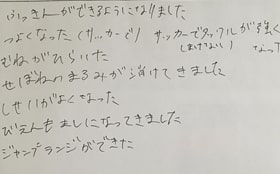 ふっきんができるようになりました
つよくなった（サッカーで） サッカーでタックルが強く
（まけない） なって
むねがひらいた
せぼねのまるみが消けてきました
しせいがよくなった
びえんもましになってきました
ジャンプランジができた